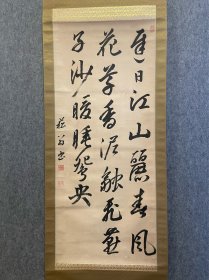 遲日江山麗春風
花草香泥融飛燕
子沙暖睡鴛央
翁書